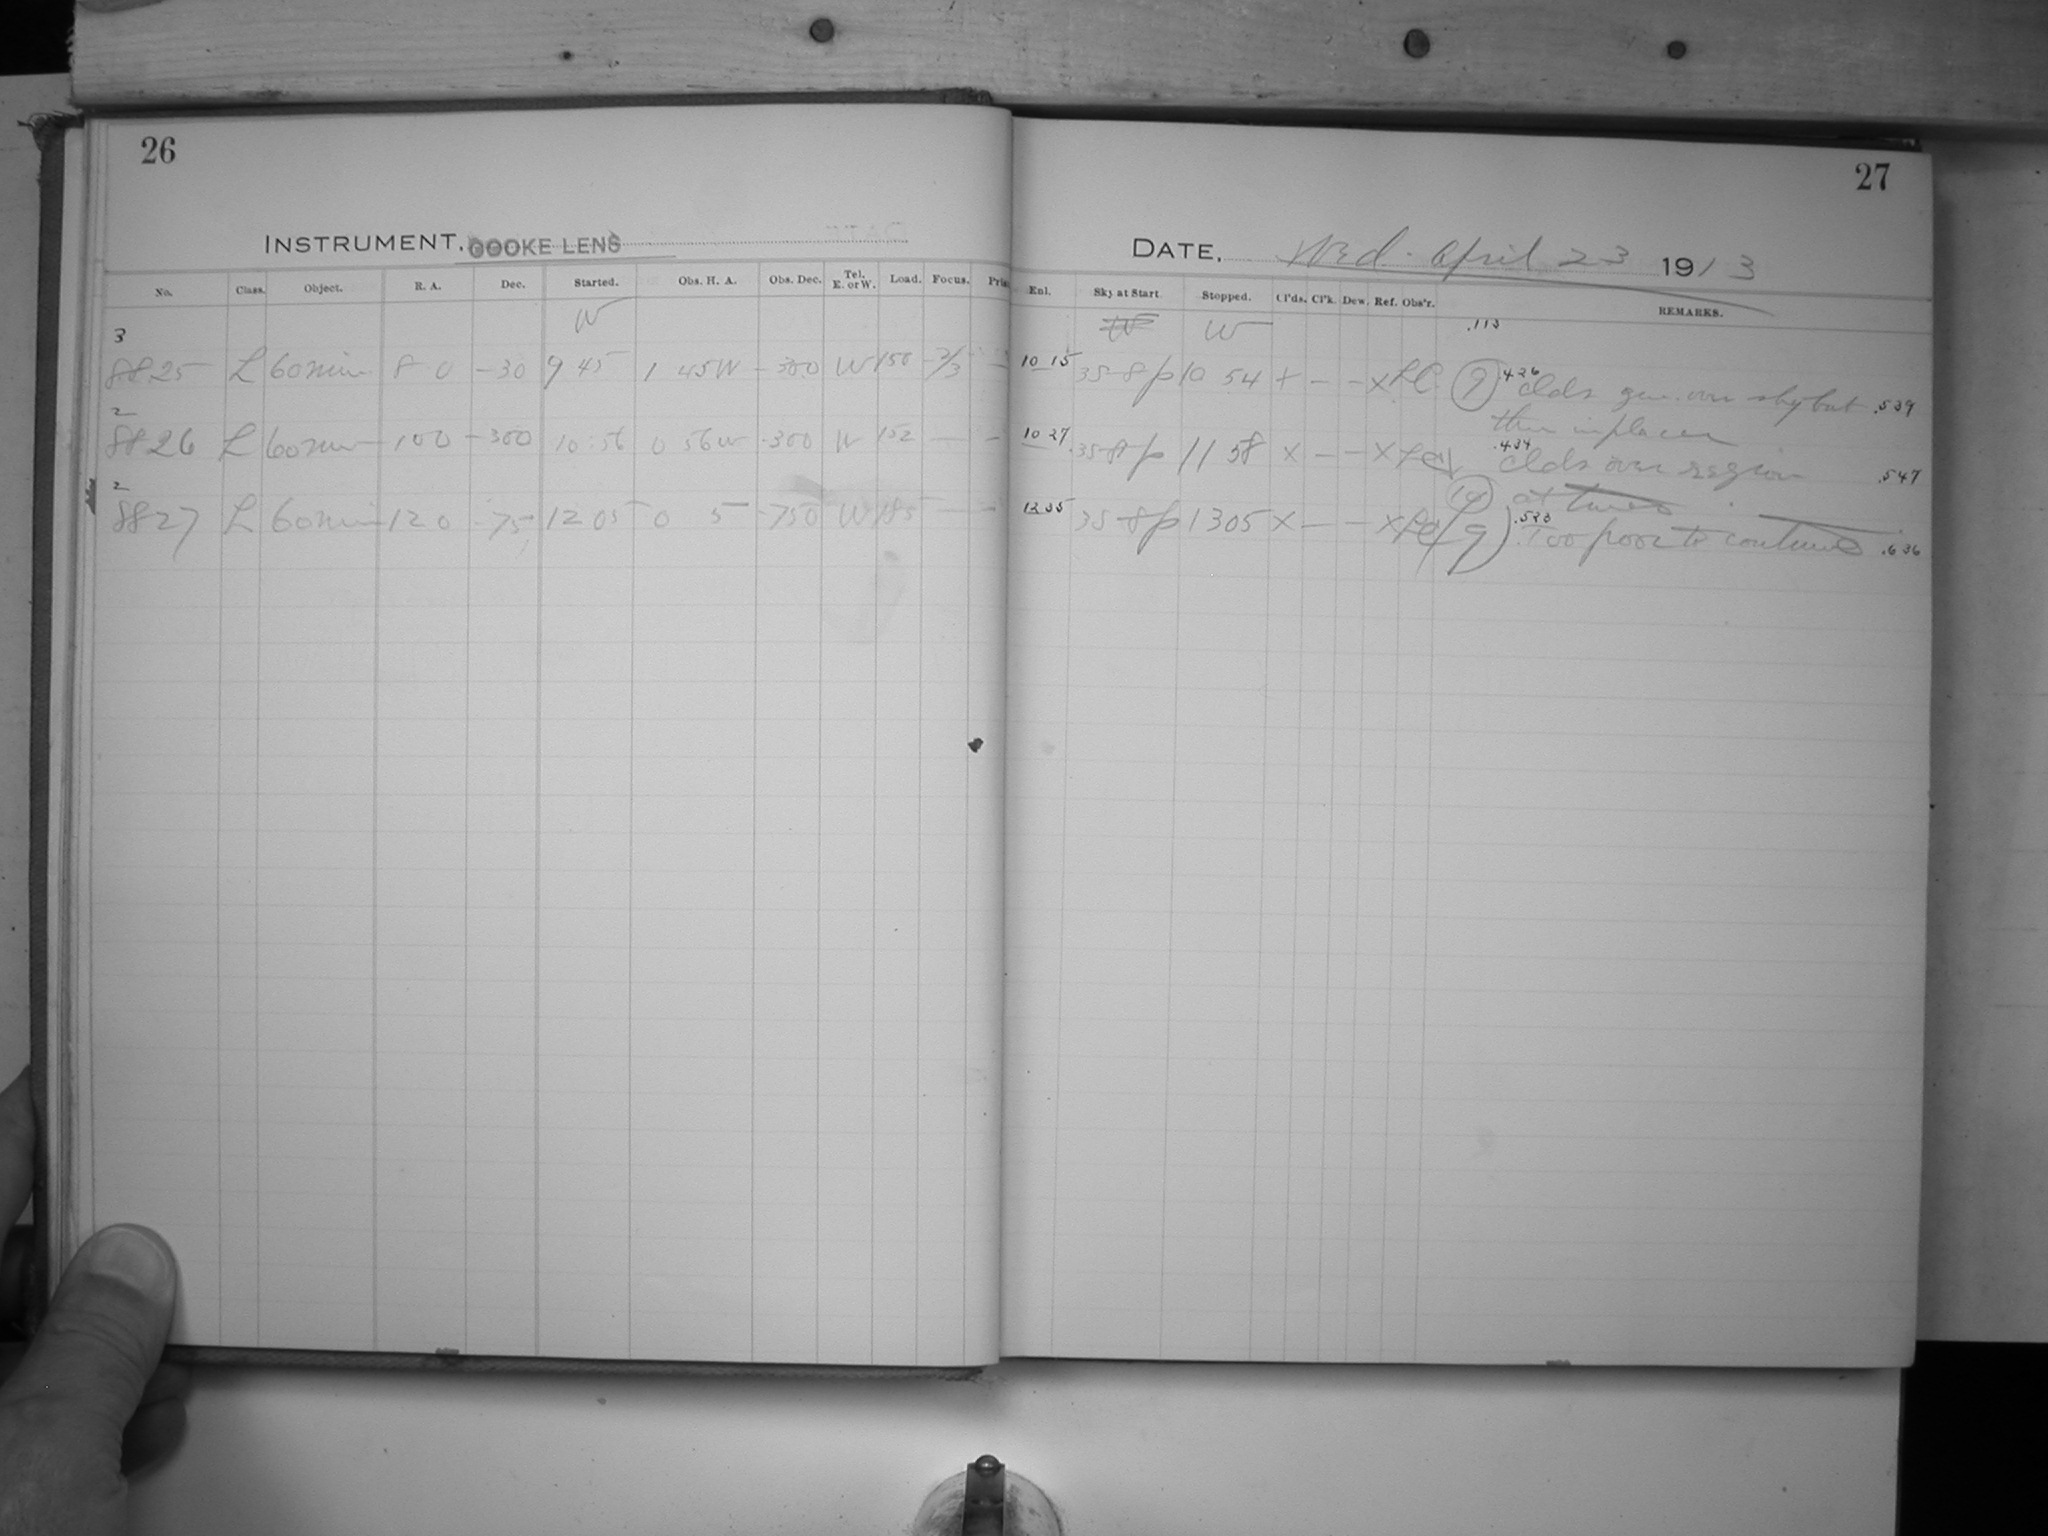 26
INSTRUMENT. COOKE LENS
No. Class. Object. R. A. Dec. Started. Obs. H. A. Obs. Dec. Tel. E. or W. Load. Focus.
W
3
8825 L 60min 8 0 -30 9 45 1 45W -300 W 150
2
8826 L 60min 100 -300 10 56 0 56W -300 W 152 —
2
8827 L 60min 120 -75 1205 0 5 -750 W 185 —
27
DATE, Wed. April 23 1913
Enl. Sky at Start. Stopped. Cl'ds. Cl'k. Dew. Ref. Obs'r. REMARKS.
W W .113
10 15 35-8p 10 54 + — — X LC (9) .426 Clds gen. over sky but .539
thin in places
10 27 35-8p 11 58 X — — X .434 Clds over region .547
(10) at times
12 35 35-8p 1305 X — — X (9) .523 Too poor to continue .636